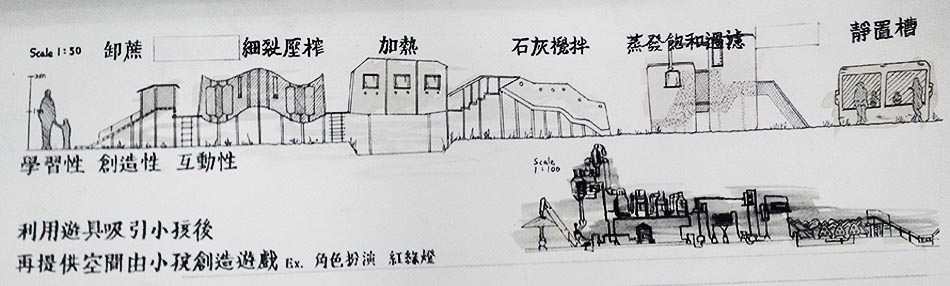 Scale 1:50 卸蔗 細裂壓榨 加熱 石灰攪拌 蒸發飽和過濾 靜置槽
2m
學習性 創造性 互動性
Scale
1:100
利用遊具吸引小孩後
再提供空間由小孩創造遊戲 Ex. 角色扮演 紅綠燈